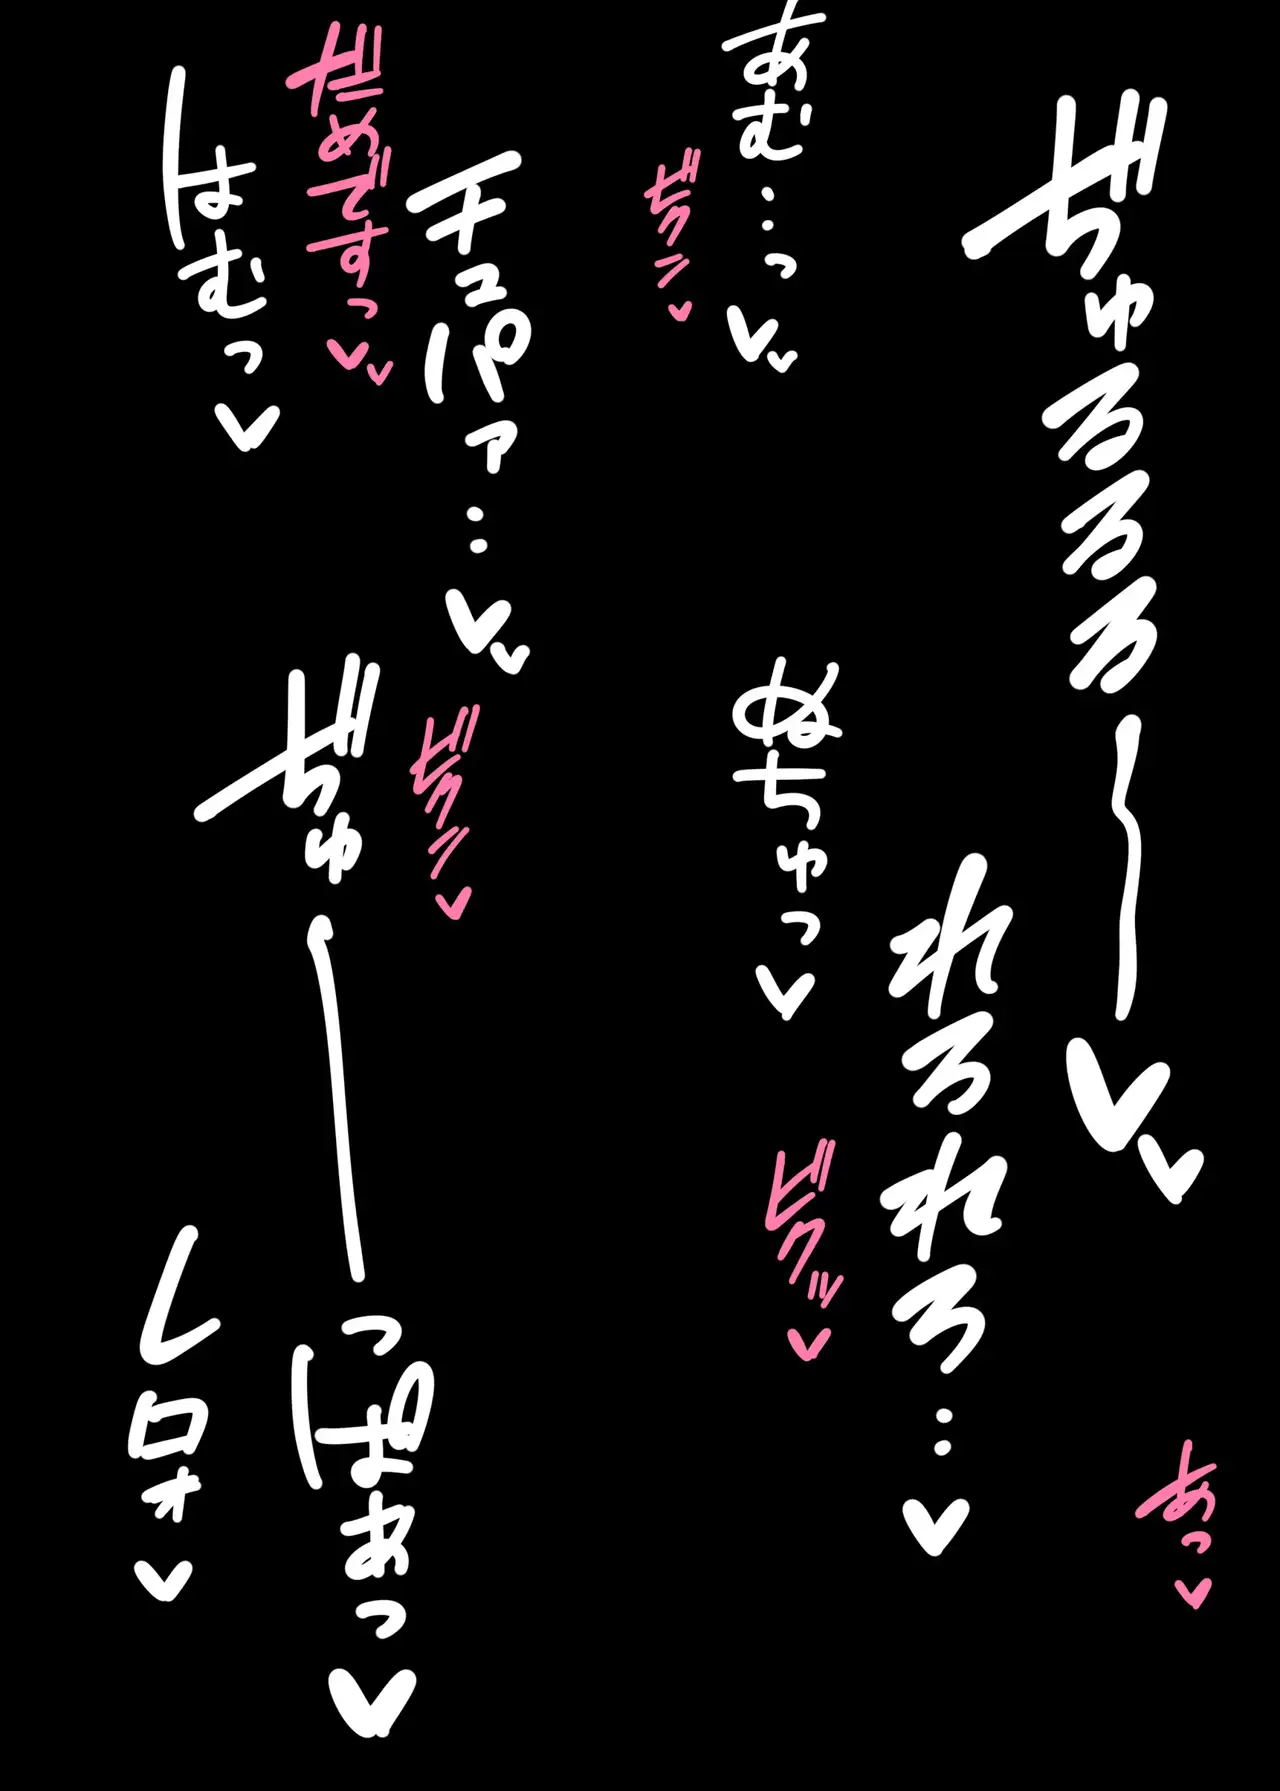 ぢゅるるる〜〜♥♥
あっ♥
れろれろ…♥
あむ…っ♥♥
ビクッ♥
ぬちゅっ♥
ビクッ♥
チュパァ…♥♥
ビクッ♥
だめですっ♥♥
はむっ♥
ぢゅーーっぱあっ♥
レロォ♥